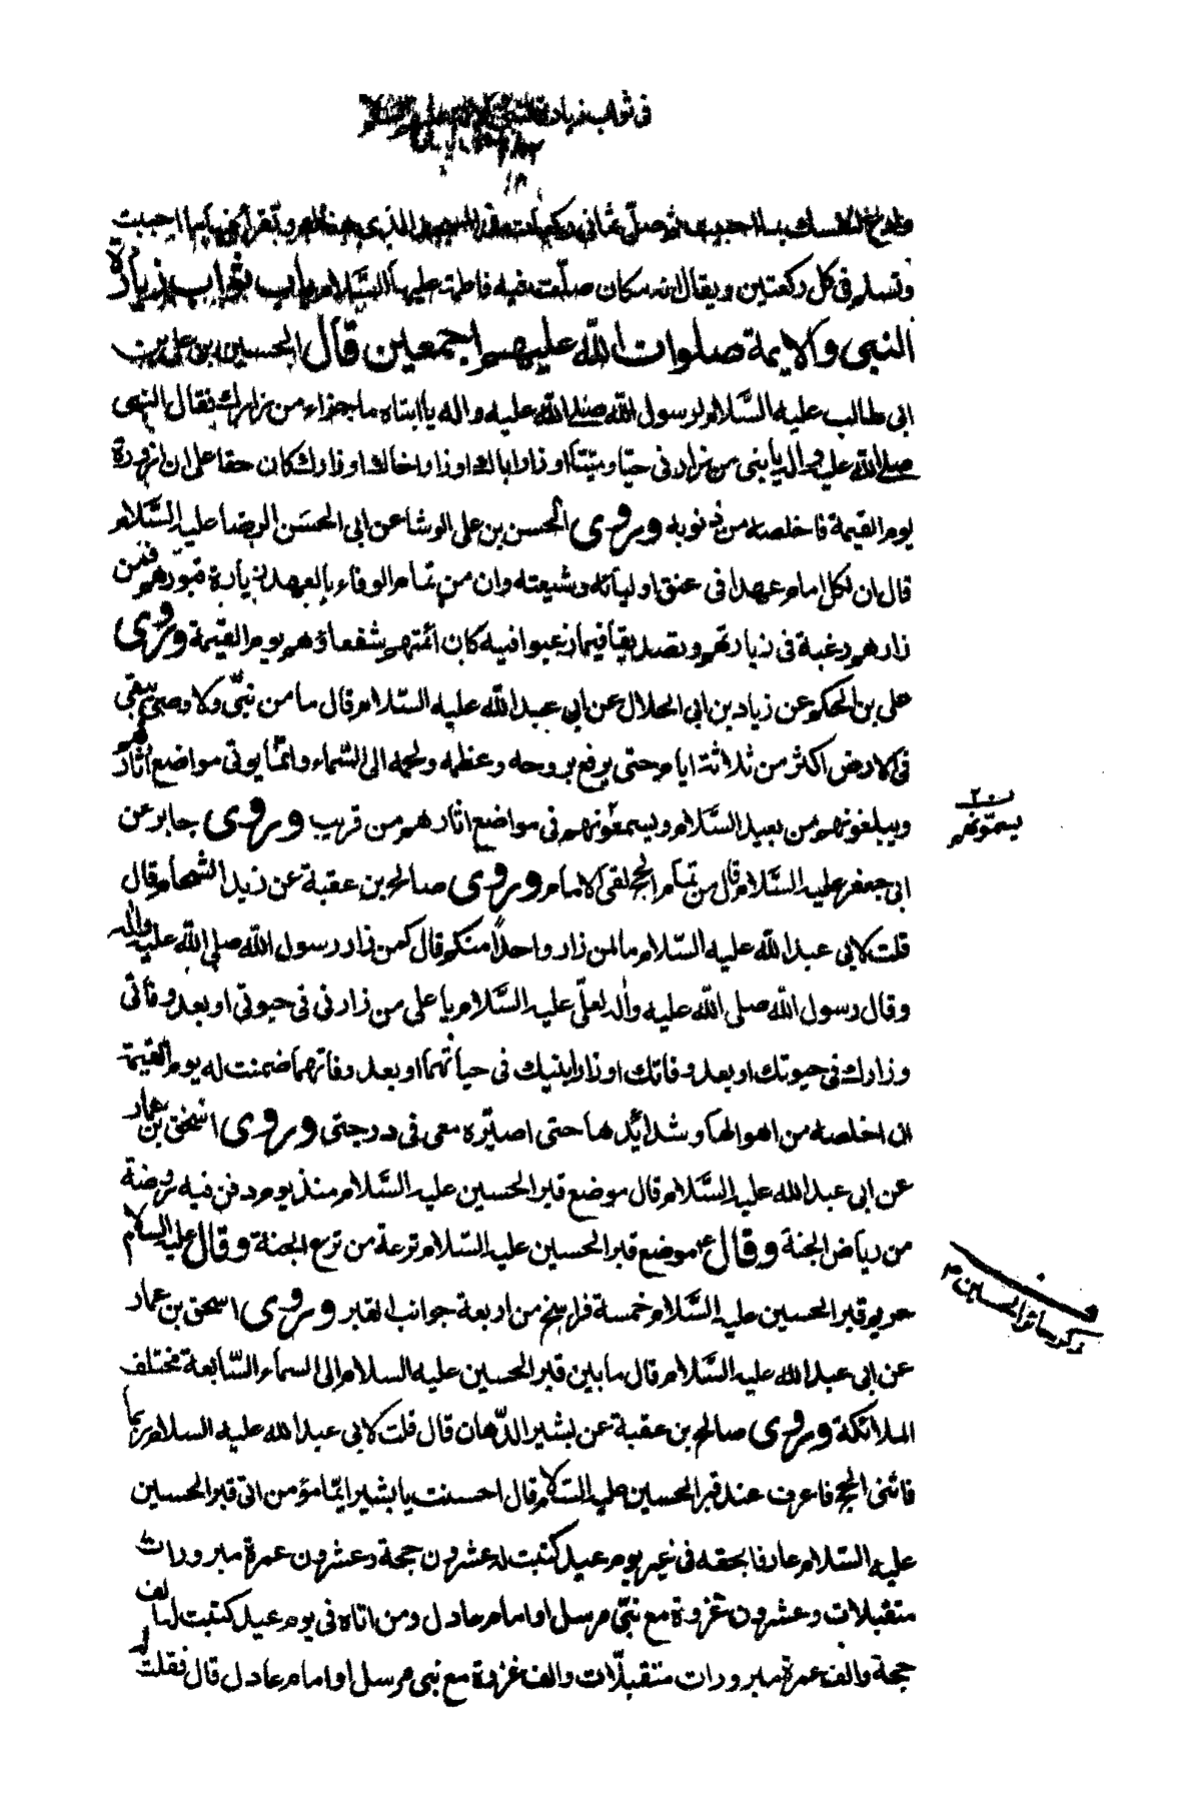 فى ثواب زيارة النبى
وتسلم فى كل ركعتين ويقال انه مكان صلت فيه فاطمة عليها السلام باب ثواب زيارة
النبى والايمة صلوات الله عليهم اجمعين قال الحسين بن على بن
ابى طالب عليه السلام لرسول الله صلى الله عليه واله يا ابتاه ما جزاء من زارك فقال النبى
صلى الله عليه واله يا بنى من زارنى حيا وميتا او زار اباك او زار اخاك او زارك كان حقا على ان ازوره
يوم القيمة فاخلصه من ذنوبه وروى الحسن بن على الوشا عن ابى الحسن الرضا عليه السلام
قال ان لكل امام عهدا فى عنق اوليائه وشيعته وان من تمام الوفاء بالعهد زيارة قبورهم فمن
زارهم رغبة فى زيارتهم وتصديقا فيما رغبوا فيه كان ائمتهم شفعاؤهم يوم القيمة وروى
على بن الحكم عن زياد بن ابى الحلال عن ابى عبد الله عليه السلام قال ما من نبى ولا وصى يبقى
فى الارض اكثر من ثلاثة ايام حتى يرفع بروحه وعظمه ولحمه الى السماء وانما يوتى مواضع اثارهم
ويبلغونهم من بعيد السلام ويسمعونهم فى مواضع اثارهم من قريب وروى جابر عن
يسمعونهم
ابى جعفر عليه السلام قال من تمام الحج لقى الامام وروى صالح بن عقبة عن زيد الشحام قال
قلت لابى عبد الله عليه السلام ما لمن زار واحدا منكم قال كمن زار رسول الله صلى الله عليه واله
وقال رسول الله صلى الله عليه واله لعلى عليه السلام يا على من زارنى فى حيوتى او بعد وفاتى
وزارك فى حيوتك او بعد وفاتك او زار ابنيك فى حياتهما او بعد وفاتهما ضمنت له يوم القيمة
ان اخلصه من اهوالها وشدائدها حتى اصيره معى فى درجتى وروى اسحق بن عمار
عن ابى عبد الله عليه السلام قال موضع قبر الحسين عليه السلام منذ يوم دفن فيه روضة
من رياض الجنة وقال ع موضع قبر الحسين عليه السلام ترعة من ترع الجنة وقال عليه السلام
حريم قبر الحسين عليه السلام خمسة فراسخ من اربعة جوانب القبر وروى اسحق بن عمار
عن ابى عبد الله عليه السلام قال ما بين قبر الحسين عليه السلام الى السماء السابعة مختلف
الملائكة وروى صالح بن عقبة عن بشير الدهان قال قلت لابى عبد الله عليه السلام ربما
فاتنى الحج فاعرف عند قبر الحسين عليه السلام قال احسنت يا بشير ايما مؤمن اتى قبر الحسين
عليه السلام عارفا بحقه فى غير يوم عيد كتبت له عشرون حجة وعشرون عمرة مبرورات
متقبلات وعشرون غزوة مع نبى مرسل او امام عادل ومن اتاه فى يوم عيد كتبت له الف
حجة والف عمرة مبرورات متقبلات والف غزوة مع نبى مرسل او امام عادل قال فقلت له